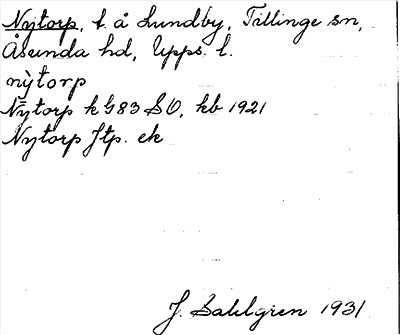 Nytorp, t. å Lundby, Tillinge sn,
Åsunda hd, Upps. l.
nỳtorp
Nytorp k G83 SO, kb 1921
Nytorp Jtp. ek
J. Sahlgren 1931